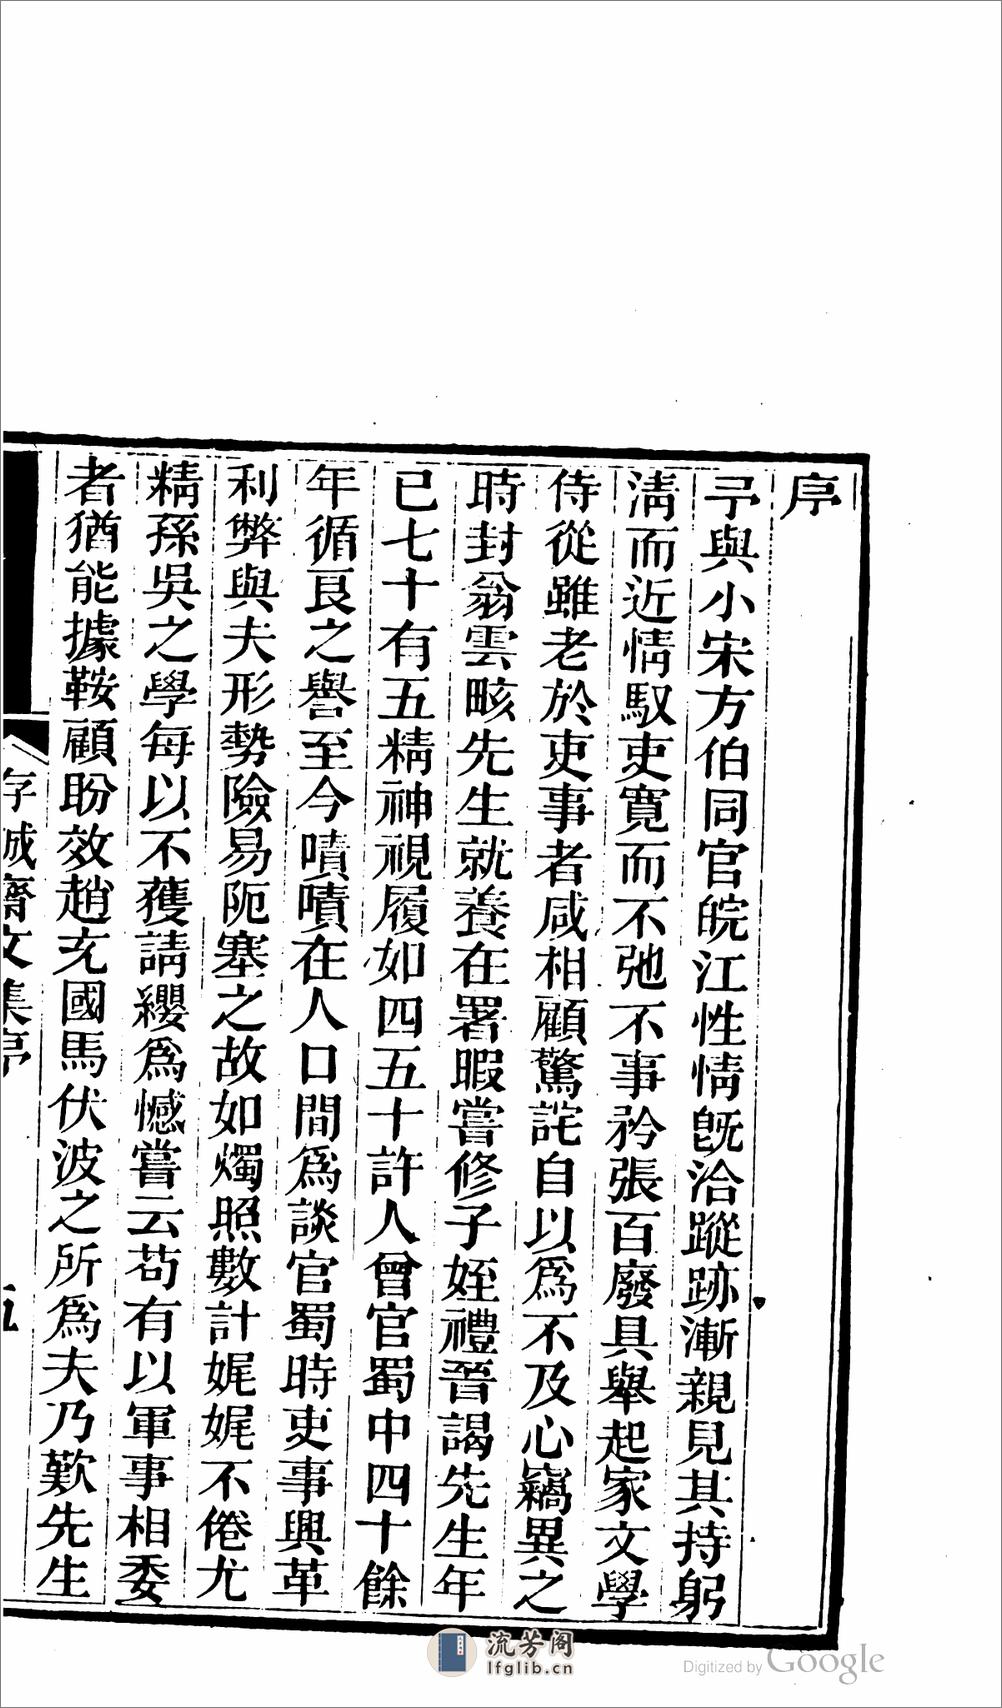 序
予與小宋方伯同官皖江性情旣洽蹤跡漸親見其持躬
淸而近情馭吏寬而不弛不事矜張百廢具舉起家文學
侍從雖老於吏事者咸相顧驚詫自以爲不及心竊異之
時封翁雲畡先生就養在署暇嘗修子姪禮晉謁先生年
已七十有五精神視履如四五十許人曾官蜀中四十餘
年循良之譽至今嘖嘖在人口間爲談官蜀時吏事興革
利弊與夫形勢險易阨塞之故如燭照數計娓娓不倦尤
精孫吳之學每以不獲請纓爲憾嘗云苟有以軍事相委
者猶能據鞍顧盼效趙充國馬伏波之所爲夫乃歎先生
存誠齋文集序
五
流芳阁
lfglib.cn
Digitized by Google